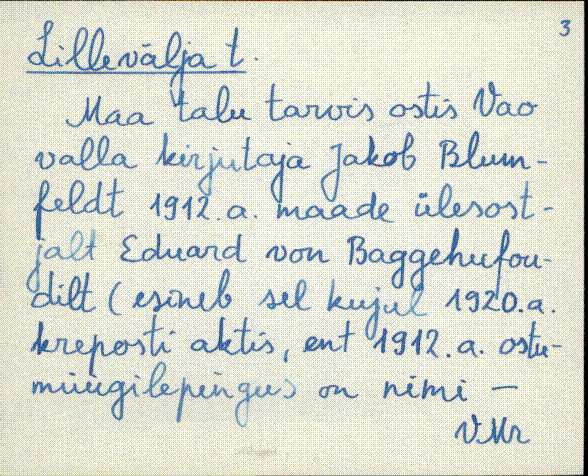 3
Lillevälja t.
Maa talu tarvis ostis Vao
valla kirjutaja Jakob Blum-
feldt 1912.a. maade ülesost-
jalt Eduard von Baggehufou-
dilt (esineb sel kujul 1920.a.
kreposti aktis, ent 1912.a. ostu-
müügilepingus on nimi —
VMr